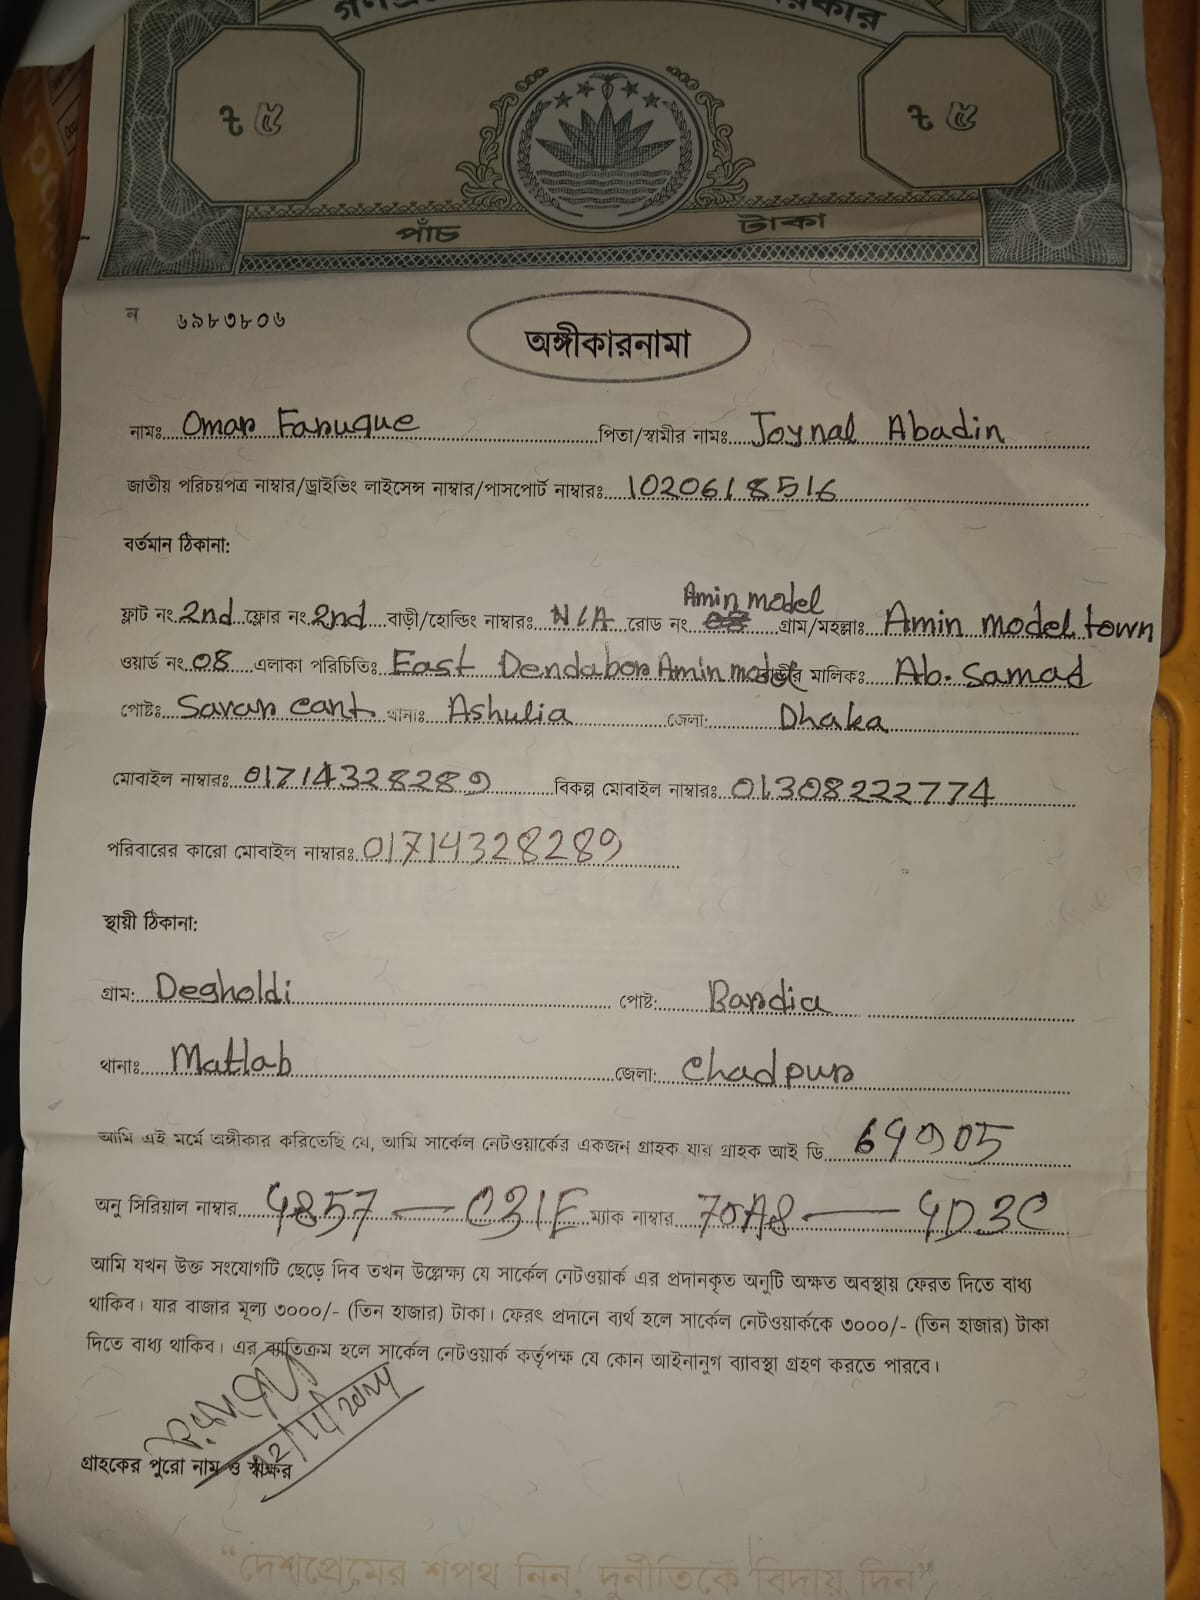 ৳ ৫ ৳ ৫
পাঁচ টাকা
ন ৬৯৮৩৮০৬
অঙ্গীকারনামা
নামঃ Omar Faruque পিতা/স্বামীর নামঃ Joynal Abadin
জাতীয় পরিচয়পত্র নাম্বার/ড্রাইভিং লাইসেন্স নাম্বার/পাসপোর্ট নাম্বারঃ 1020618516
বর্তমান ঠিকানা:
ফ্লাট নং 2nd ফ্লোর নং 2nd বাড়ী/হোল্ডিং নাম্বারঃ N/A রোড নং Amin model গ্রাম/মহল্লাঃ Amin model town
ওয়ার্ড নং 08 এলাকা পরিচিতিঃ East Dendabor Amin model মালিকঃ Ab. Samad
পোষ্টঃ Savar cant থানাঃ Ashulia জেলা: Dhaka
মোবাইল নাম্বারঃ 01714328289 বিকল্প মোবাইল নাম্বারঃ 01308222774
পরিবারের কারো মোবাইল নাম্বারঃ 01714328289
স্থায়ী ঠিকানা:
গ্রাম: Degholdi পোষ্ট: Bardia
থানাঃ Matlab জেলা: Chadpur
আমি এই মর্মে অঙ্গীকার করিতেছি যে, আমি সার্কেল নেটওয়ার্কের একজন গ্রাহক যার গ্রাহক আই ডি 69905
অনু সিরিয়াল নাম্বার 4857 — C31E ম্যাক নাম্বার 70A8 — 4D3C
আমি যখন উক্ত সংযোগটি ছেড়ে দিব তখন উল্লেক্ষ্য যে সার্কেল নেটওয়ার্ক এর প্রদানকৃত অনুটি অক্ষত অবস্থায় ফেরত দিতে বাধ্য
থাকিব। যার বাজার মূল্য ৩০০০/- (তিন হাজার) টাকা। ফেরৎ প্রদানে ব্যর্থ হলে সার্কেল নেটওয়ার্ককে ৩০০০/- (তিন হাজার) টাকা
দিতে বাধ্য থাকিব। এর ব্যতিক্রম হলে সার্কেল নেটওয়ার্ক কর্তৃপক্ষ যে কোন আইনানুগ ব্যাবস্থা গ্রহণ করতে পারবে।
গ্রাহকের পুরো নাম ও স্বাক্ষর
“দেশপ্রেমের শপথ নিন, দুর্নীতিকে বিদায় দিন”